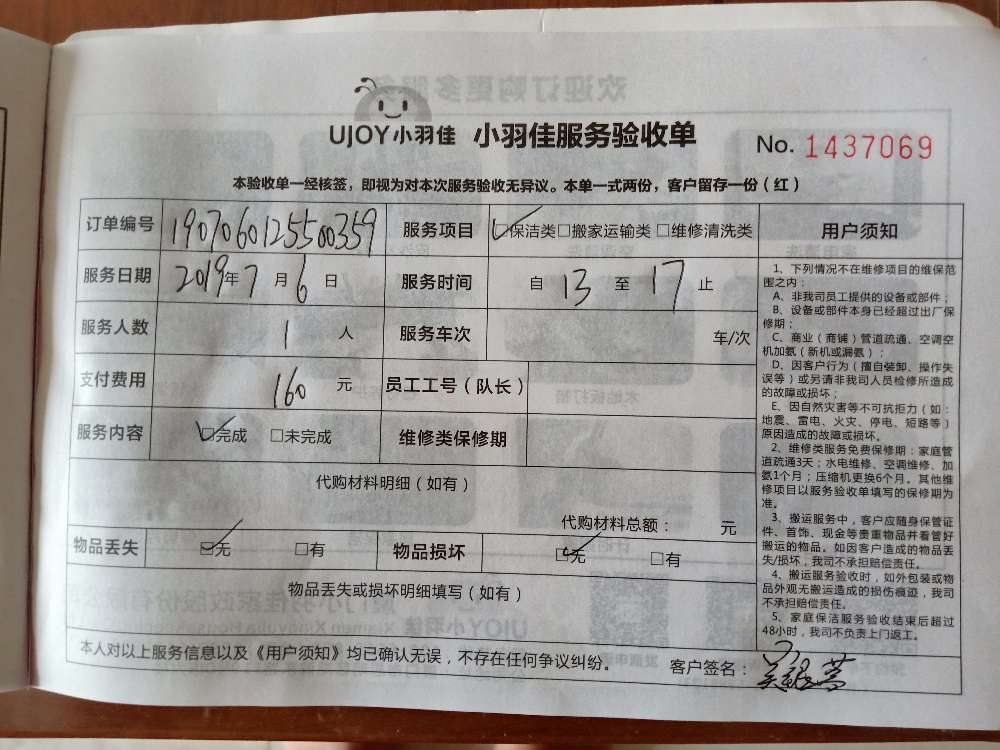 UJOY小羽佳 小羽佳服务验收单 No. 1437069
本验收单一经核签，即视为对本次服务验收无异议。本单一式两份，客户留存一份（红）
订单编号 1907060125500359 服务项目 ☑保洁类□搬家运输类□维修清洗类
服务日期 2019年7月6日 服务时间 自13至17止
服务人数 1人 服务车次 车/次
支付费用 160元 员工工号（队长）
服务内容 ☑完成 □未完成 维修类保修期
代购材料明细（如有）
代购材料总额： 元
物品丢失 ☑无 □有 物品损坏 ☑无 □有
物品丢失或损坏明细填写（如有）
本人对以上服务信息以及《用户须知》均已确认无误，不存在任何争议纠纷。 客户签名：
用户须知
1、下列情况不在维修项目的维保范
围之内：
A、非我司员工提供的设备或部件；
B、设备或部件本身已经超过出厂保
修期；
C、商业（商铺）管道疏通、空调空
机加氨（新机或漏氨）；
D、因客户行为（擅自装卸、操作失
误等）或另请非我司人员检修所造成
的故障或损坏；
E、因自然灾害等不可抗拒力（如：
地震、雷电、火灾、停电、短路等）
原因造成的故障或损坏。
2、维修类服务免费保修期：家庭管
道疏通3天；水电维修、空调维修、加
氨1个月；压缩机更换6个月。其他维
修项目以服务验收单填写的保修期为
准。
3、搬运服务中，客户应随身保管证
件、首饰、现金等贵重物品并看管好
搬运的物品。如因客户造成的物品丢
失/损坏，我司不承担赔偿责任。
4、搬运服务验收时，如外包装或物
品外观无搬运造成的损伤痕迹，我司
不承担赔偿责任。
5、家庭保洁服务验收结束后超过
48小时，我司不负责上门返工。